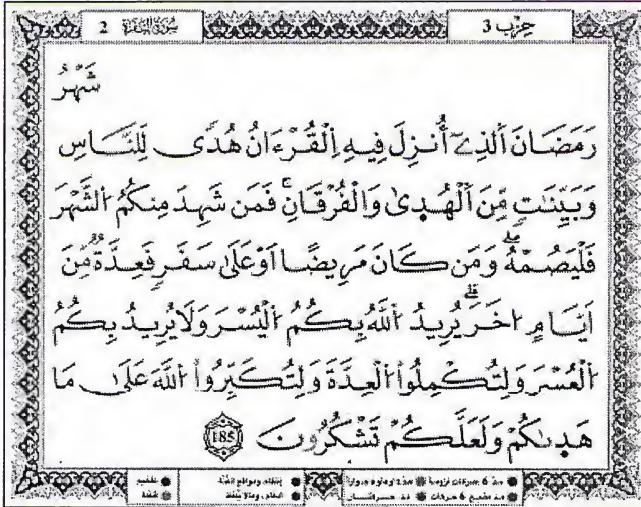 حِزْب 3
سُورَةُ البَقَرَة 2
شَهْرُ
رَمَضَانَ اَلذِےٓ أُنزِلَ فِيهِ اِلْقُرْءَانُ هُدٗى لِّلنَّاسِ
وَبَيِّنَٰتٖ مِّنَ اَلْهُد۪ىٰ وَالْفُرْقَانِۖ فَمَن شَهِدَ مِنكُمُ اُلشَّهْرَ
فَلْيَصُمْهُۖ وَمَن كَانَ مَرِيضًا اَوْ عَلَىٰ سَفَرٖ فَعِدَّةٞ مِّنَ
اَيَّامٍ اُخَرَۖ يُرِيدُ اُللَّهُ بِكُمُ اُلْيُسْرَ وَلَا يُرِيدُ بِكُمُ
اُلْعُسْرَ وَلِتُكْمِلُواْ اُلْعِدَّةَ وَلِتُكَبِّرُواْ اُللَّهَ عَلَىٰ مَا
هَد۪ىٰكُمْ وَلَعَلَّكُمْ تَشْكُرُونَ 185
مدّ 6 حركات لزوماً
مدّ حركتان
تفخيم
قلقلة